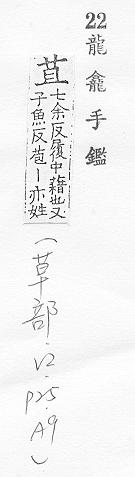 22龍龕手鑑
苴
七余反履中藉也又
子魚反苞丨亦姓
(草部.V2.P25.A9)